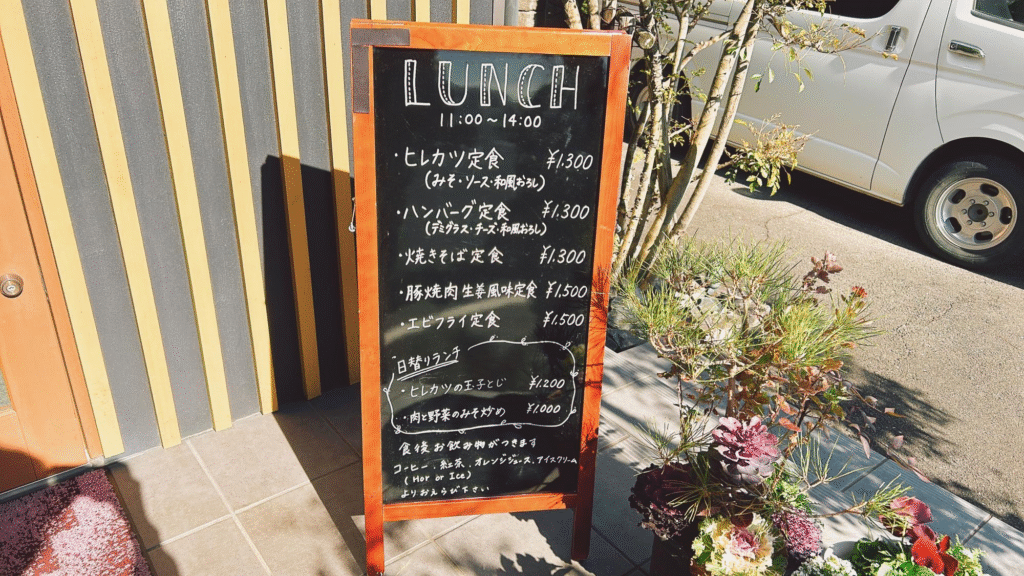 LUNCH
11:00～14:00
・ヒレカツ定食 ¥1.300
(みそ・ソース・和風おろし)
・ハンバーグ定食 ¥1.300
(デミグラス・チーズ・和風おろし)
・焼きそば定食 ¥1.300
・豚焼肉生姜風味定食 ¥1.500
・エビフライ定食 ¥1.500
日替りランチ
・ヒレカツの玉子とじ ¥1.200
・肉と野菜のみそ炒め ¥1.000
食後お飲み物がつきます
コーヒー、紅茶、オレンジジュース、アイスクリーム
(Hot or Ice)
よりおえらび下さい